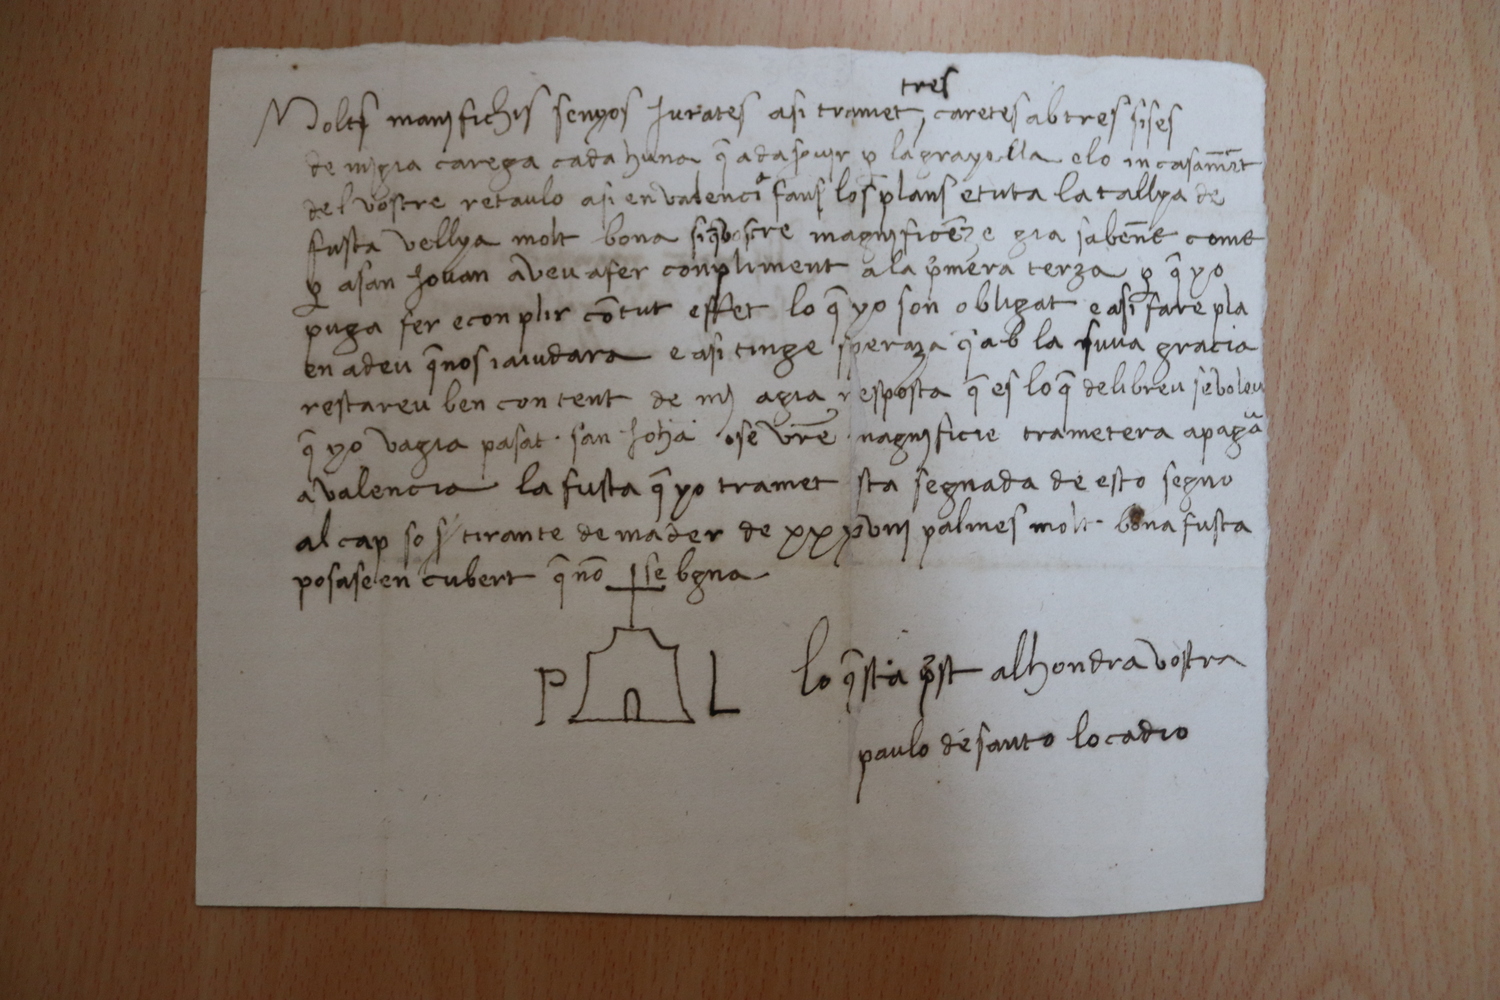 tres
Molts manifichis senyos Jurates asi tramet, caretes ab tres sises
de migia carega cada huna q̄ a da seruir p̱ la grayella e lo in casam̄ēt
del vostre retaulo asi en valencia fans los plans e tuta la tallya de
fusta vellya molt bona si q̄ vostre magnificēze gia saben̄t come
p̱ a san Jouan aveu a fer conpliment a la p̄mera terza p̱ q̄ yo
puga fer e conplir cō tut effet lo q̄ yo son obligat e asi fare pla
en a deu q̄ nos iaiudara e asi tinge speraza q̄ ab la suua gracia
restareu ben content de mj agia resposta q̄ es lo q̄ delibreu se voleu
q̄ yo vagia pasat san Joha o se vrē magnificie trametera a pagā
a valencia la fusta q̄ yo tramet sta segnada de esto segno
al cap so si tirante de mader de xxxviij palmes molt bona fusta
posase en cubert q̄ nō se bgna
P L
lo q̄ sta p̄st al hondra vostra
paulo de santo locadio